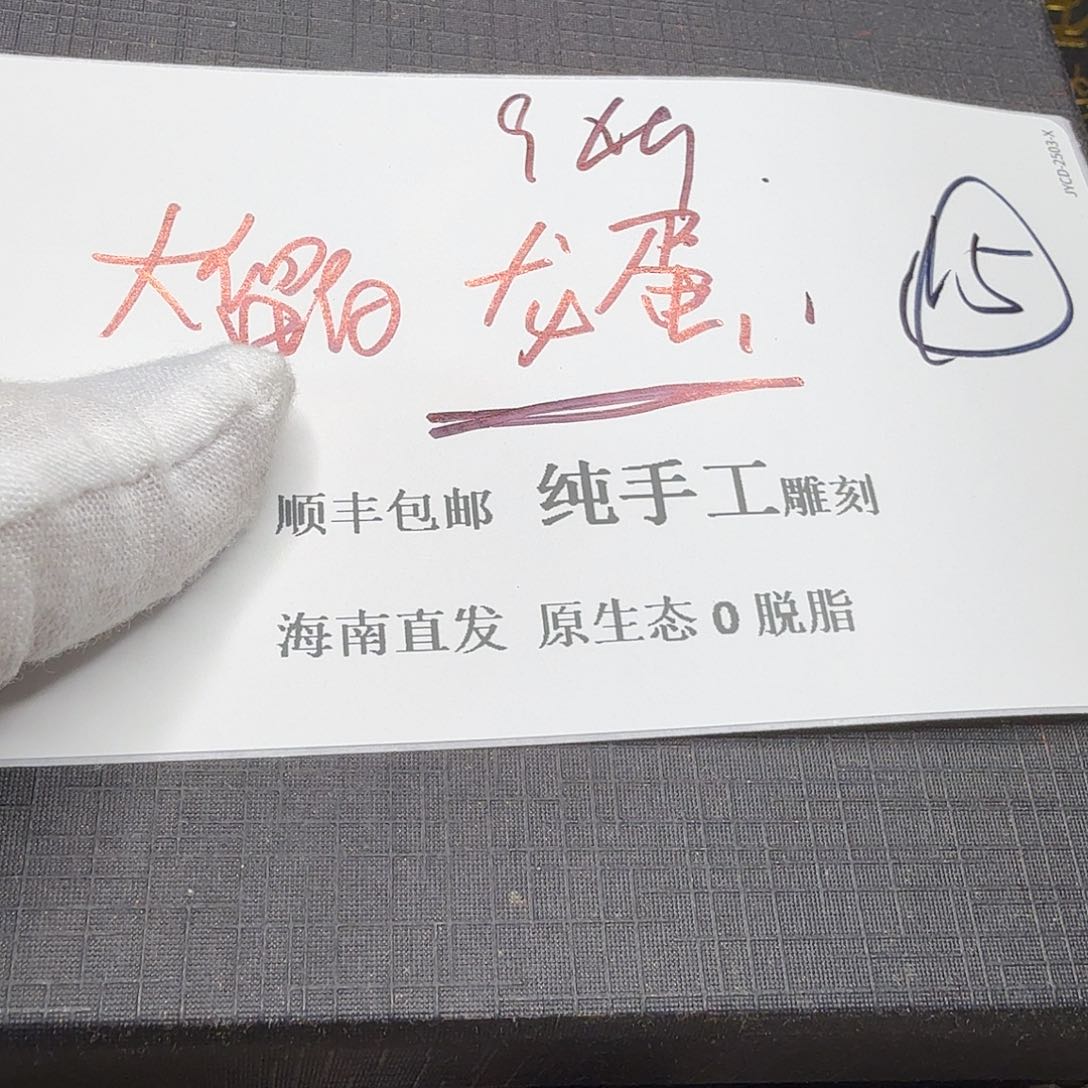 JYCD-2503-X
15
大留白 龙蛋
顺丰包邮 纯手工雕刻
海南直发 原生态0脱脂